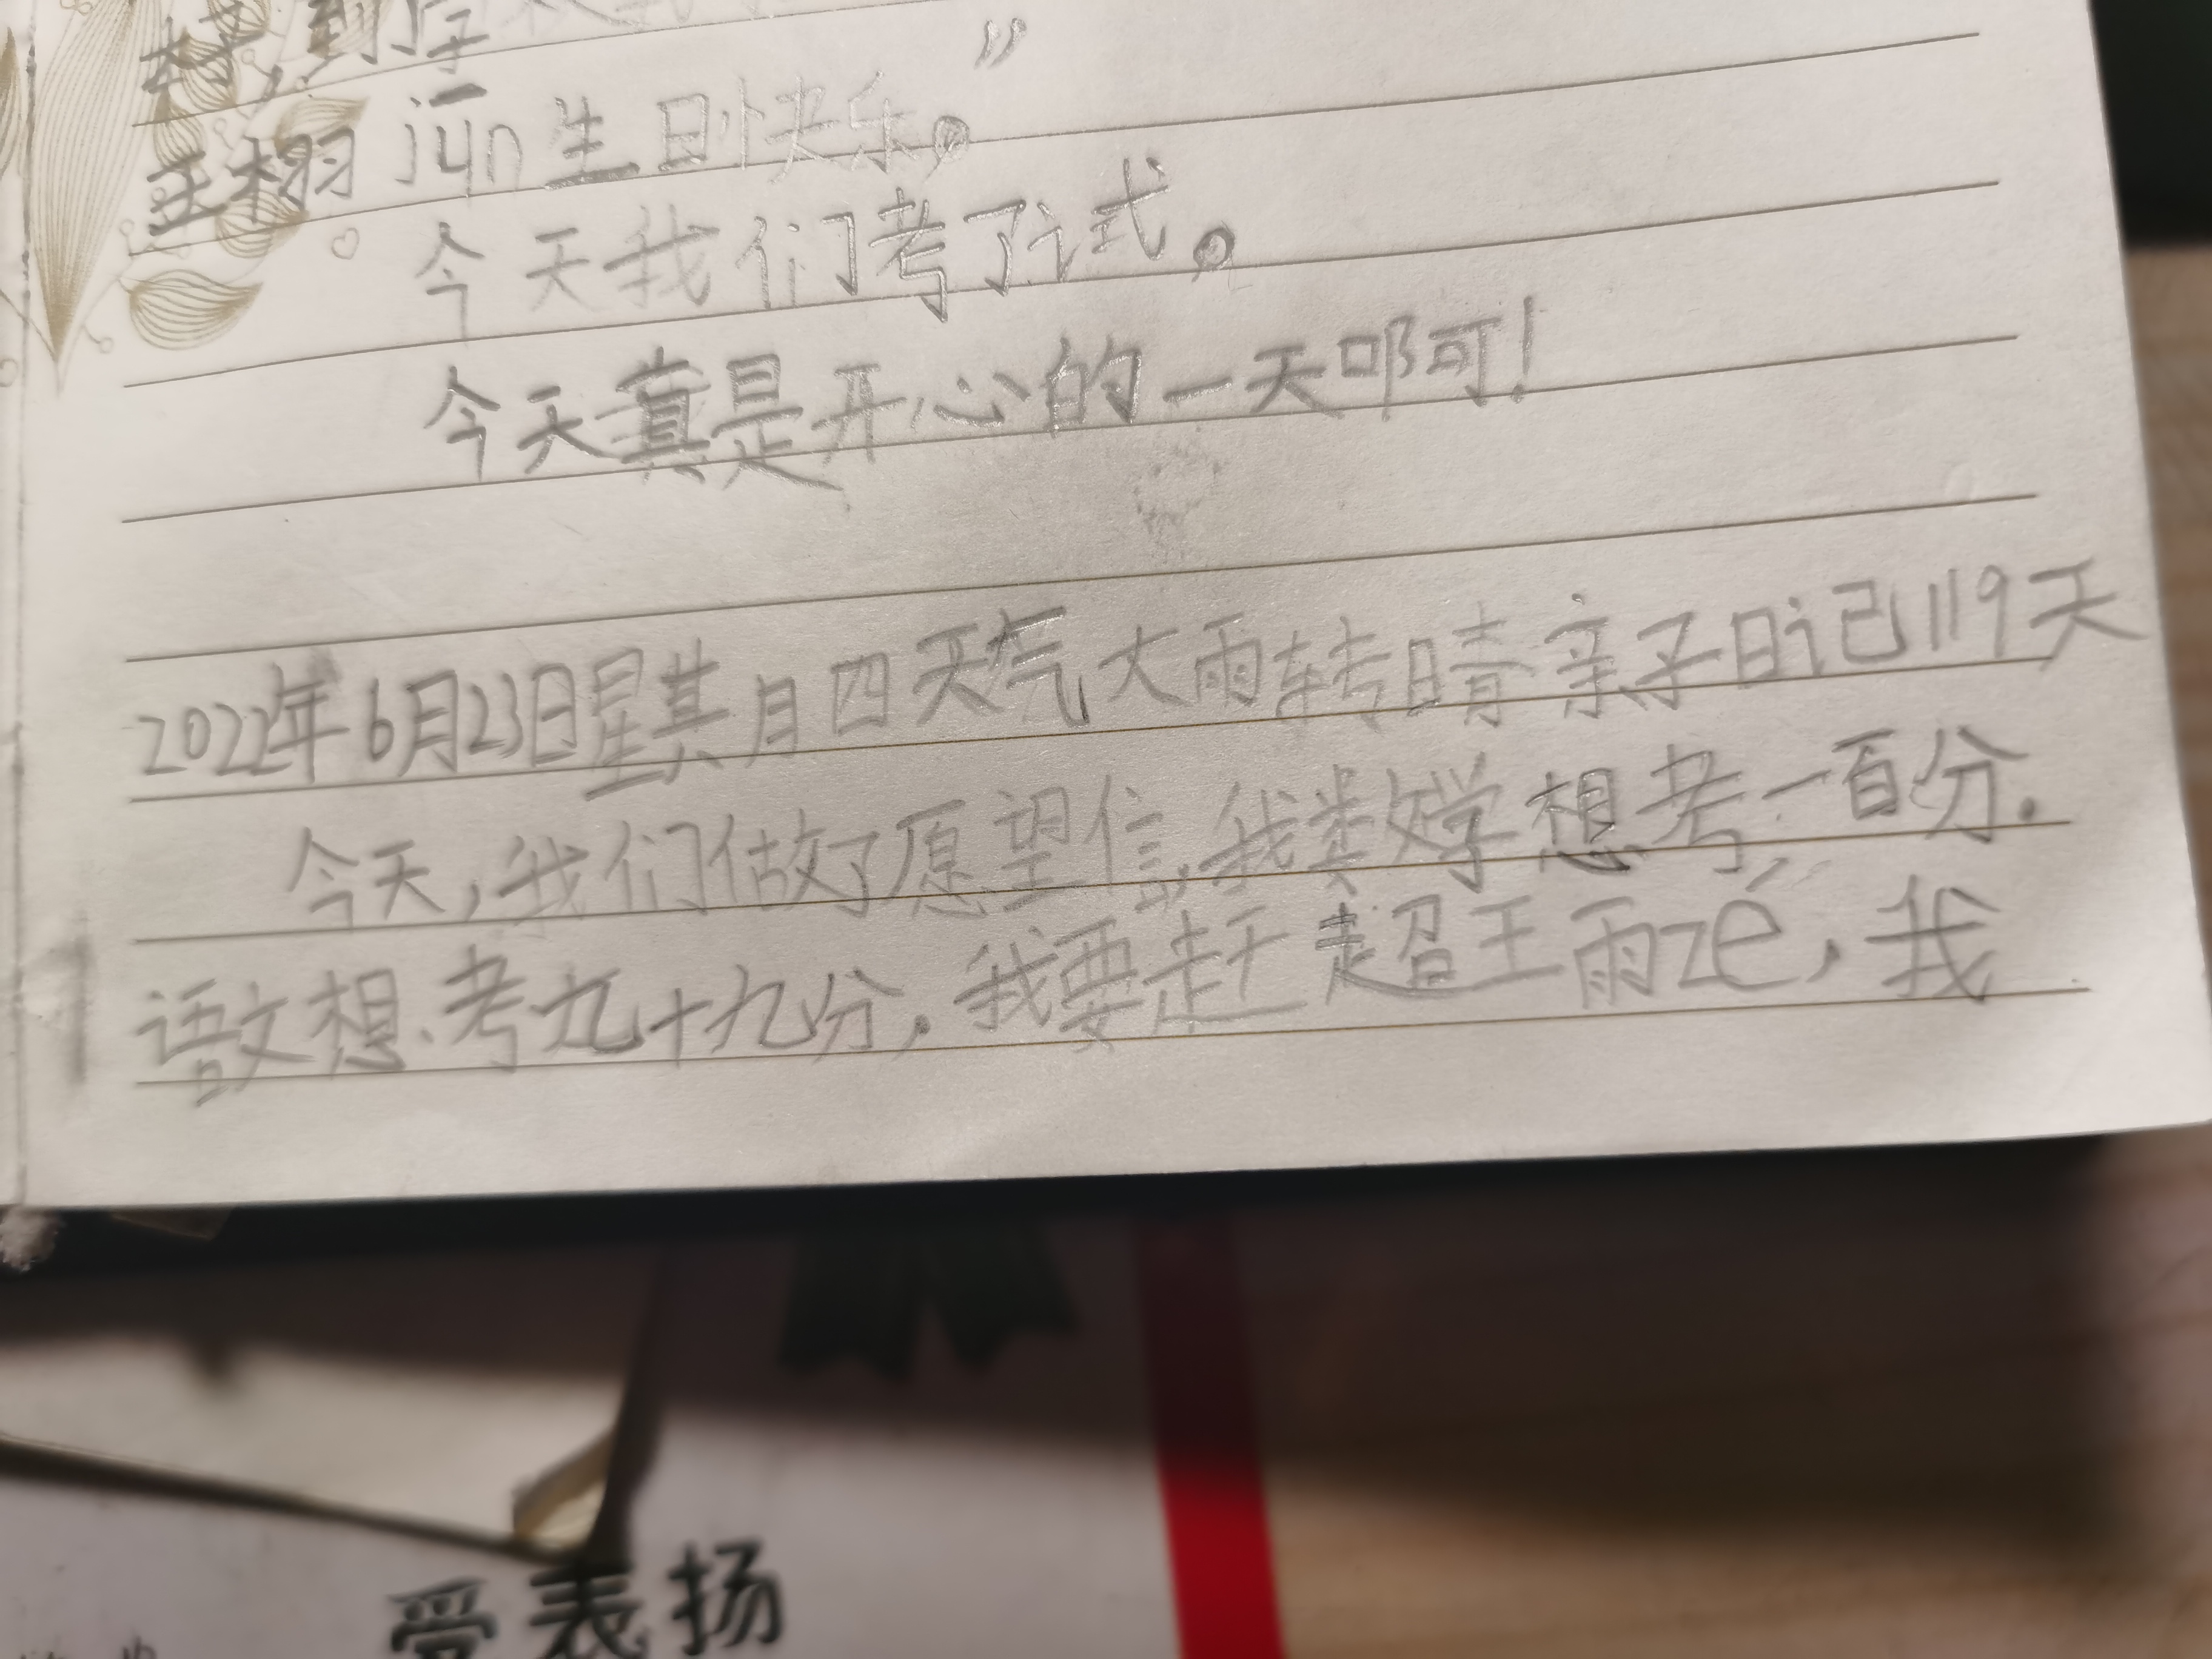 到学
”
王栩jūn生日快乐。
今天我们考了试。
今天真是开心的一天啊!
2022年6月23日星期四天气大雨转晴亲子日记119天
今天,我们做了愿望信,我数学想考一百分.
语文想考九十九分,我要赶超王雨zé,我
受表扬